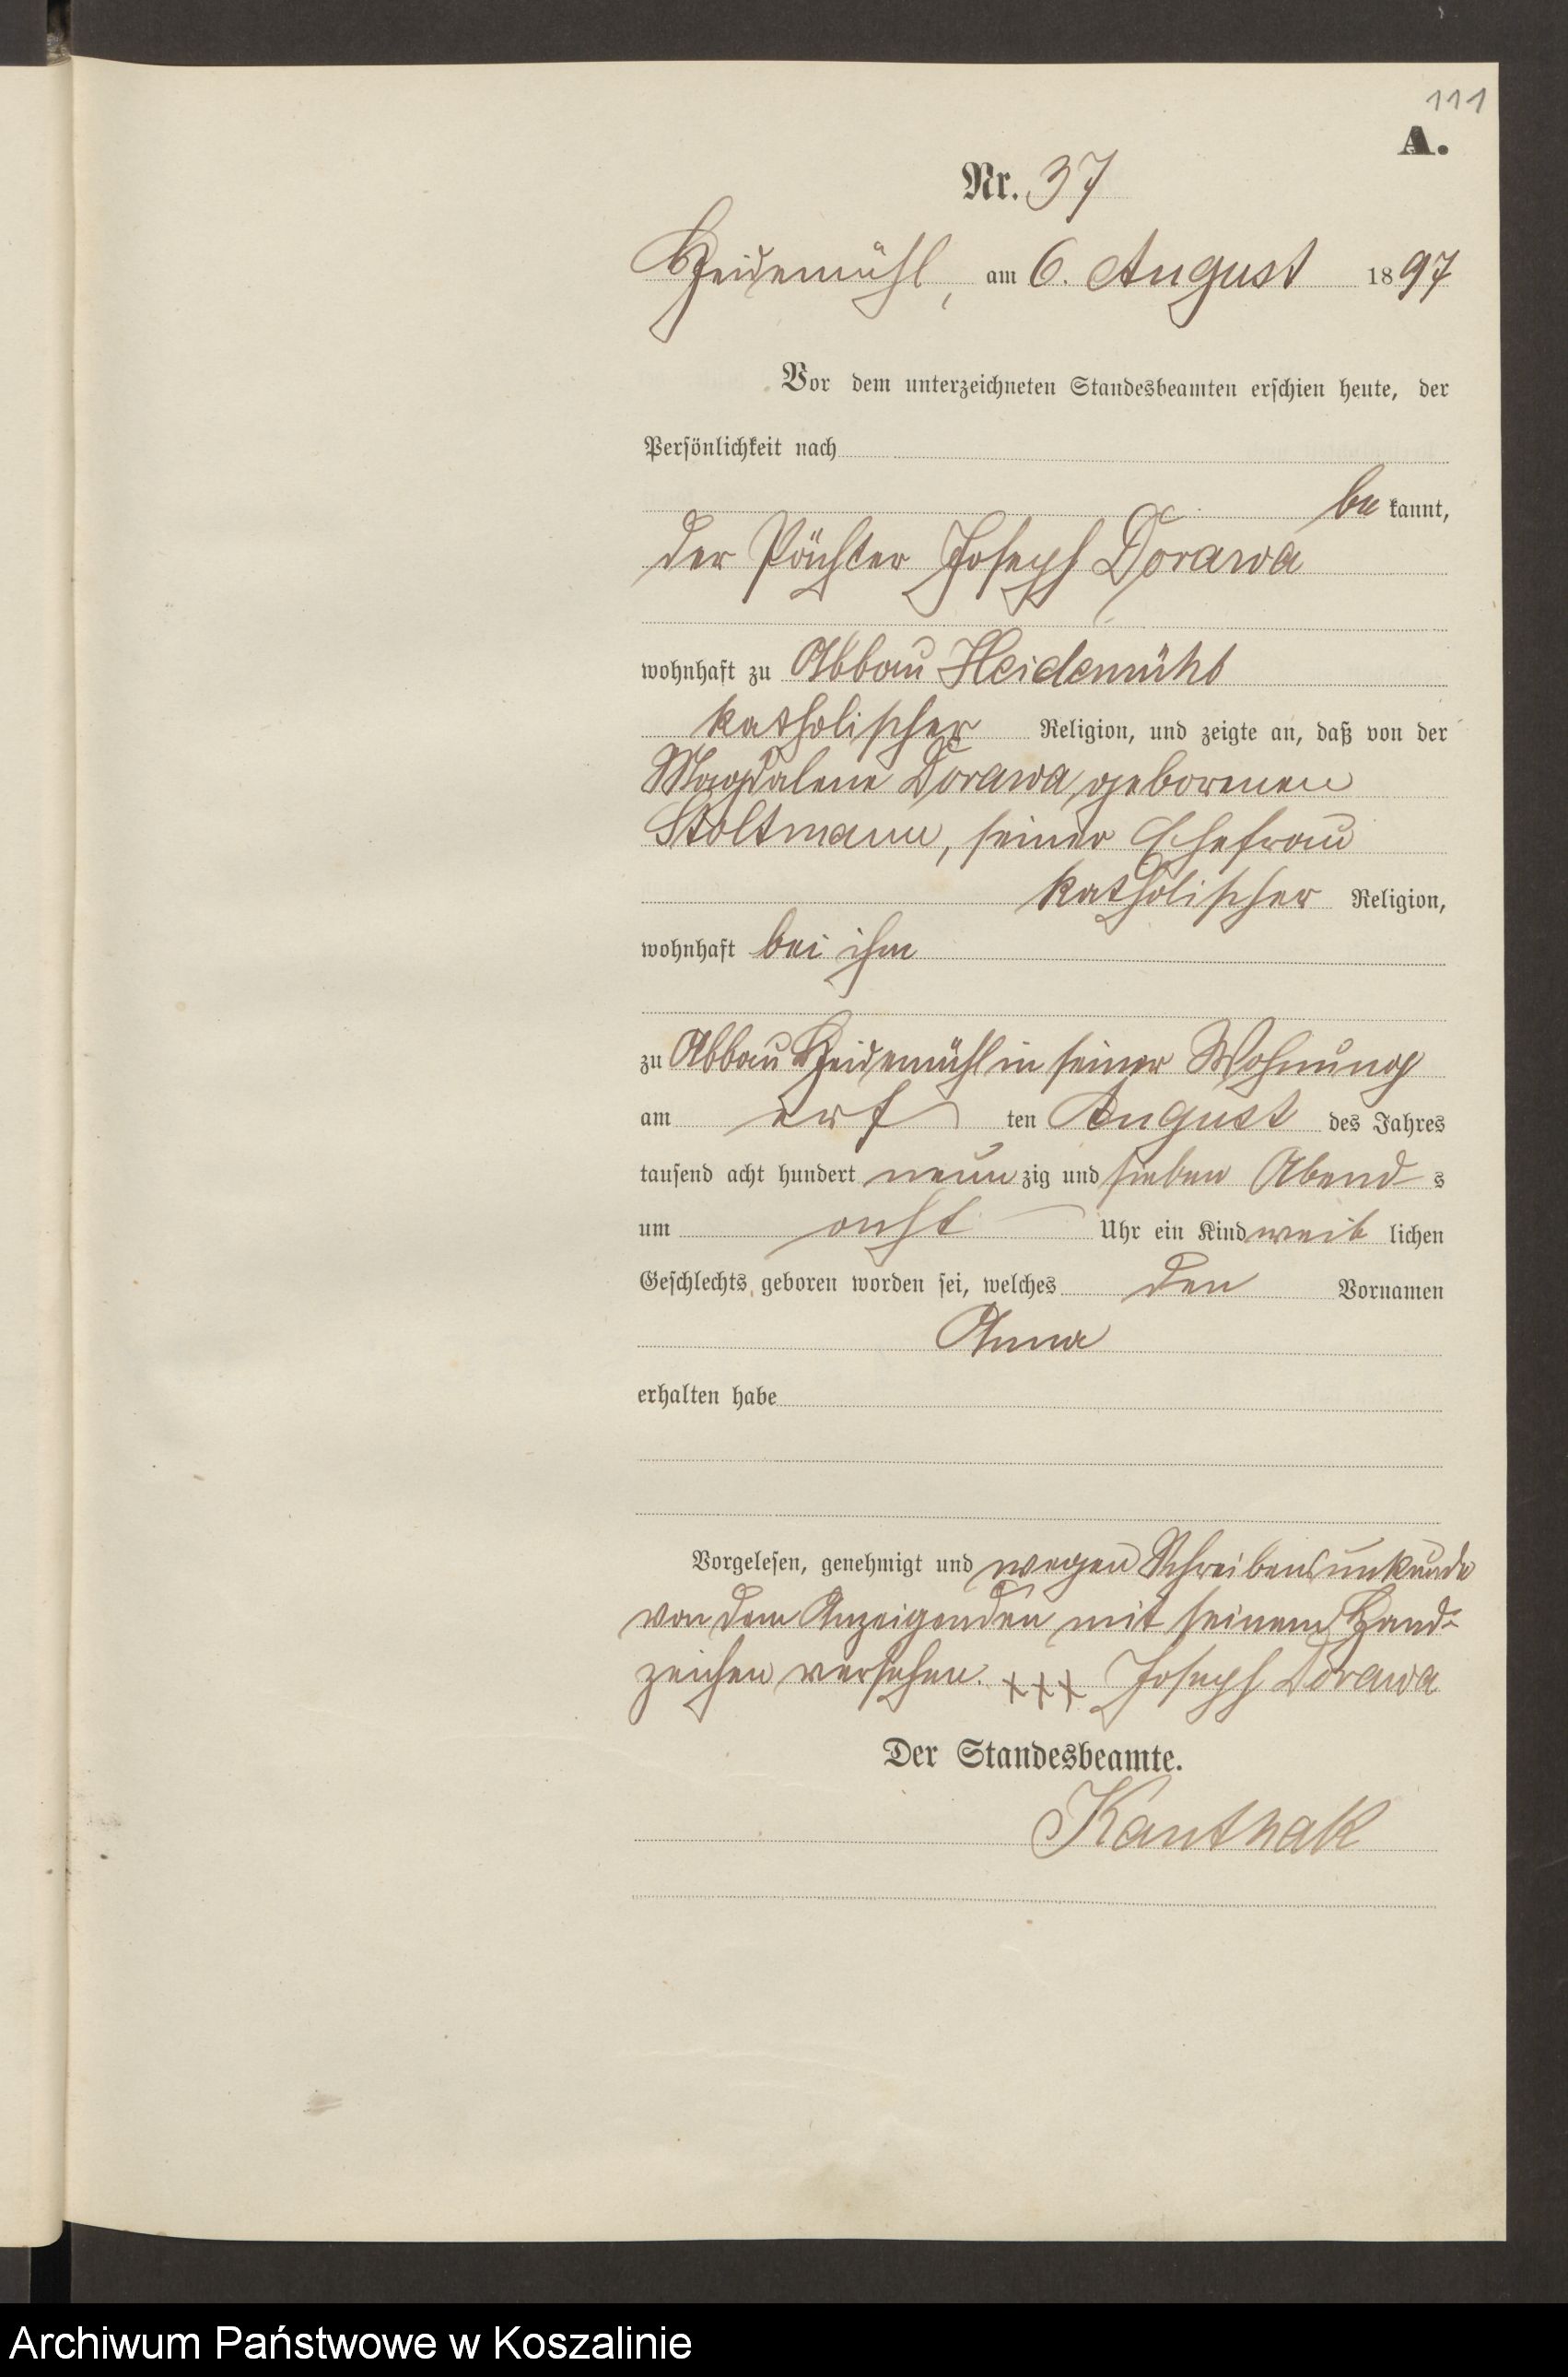 111
A.
Nr. 37
Heidemühl, am 6. August 1897
Vor dem unterzeichneten Standesbeamten erschien heute, der
Persönlichkeit nach
be kannt,
der Pächter Joseph Dorawa
wohnhaft zu Abbau Heidemühl
katholischer Religion, und zeigte an, daß von der
Magdalene Dorawa, geborenen
Stoltmann, seiner Ehefrau
katholischer Religion,
wohnhaft bei ihm
zu Abbau Heidemühl in seiner Wohnung
am ten August des Jahres
tausend acht hundert neun zig und sieben Abend s
um acht Uhr ein Kind weib lichen
Geschlechts geboren worden sei, welches den Vornamen
Anna
erhalten habe
Vorgelesen, genehmigt und wegen Schreibensunkunde
von dem Anzeigenden mit seinem Hand-
zeichen versehen. +++ Joseph Dorawa
Der Standesbeamte.
Kanthak
Archiwum Państwowe w Koszalinie